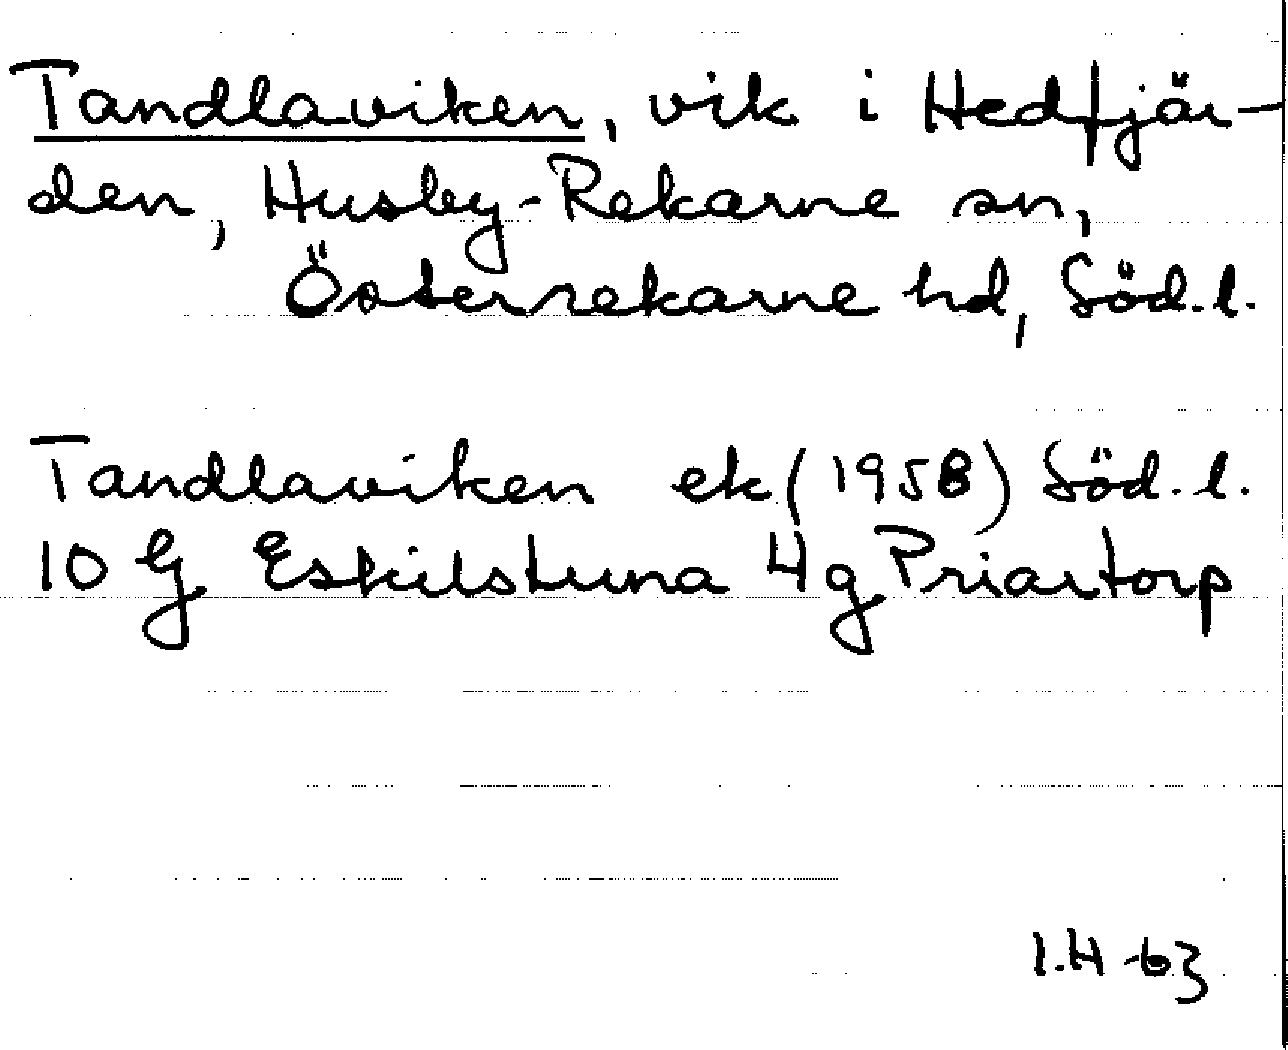 Tandlaviken, vik i Hedfjär-
den, Husby-Rekarne sn,
Österrekarne hd, Söd.l.
Tandlaviken ek (1958) Söd.l.
10 G Eskilstuna 4g Priartorp
I.H -63